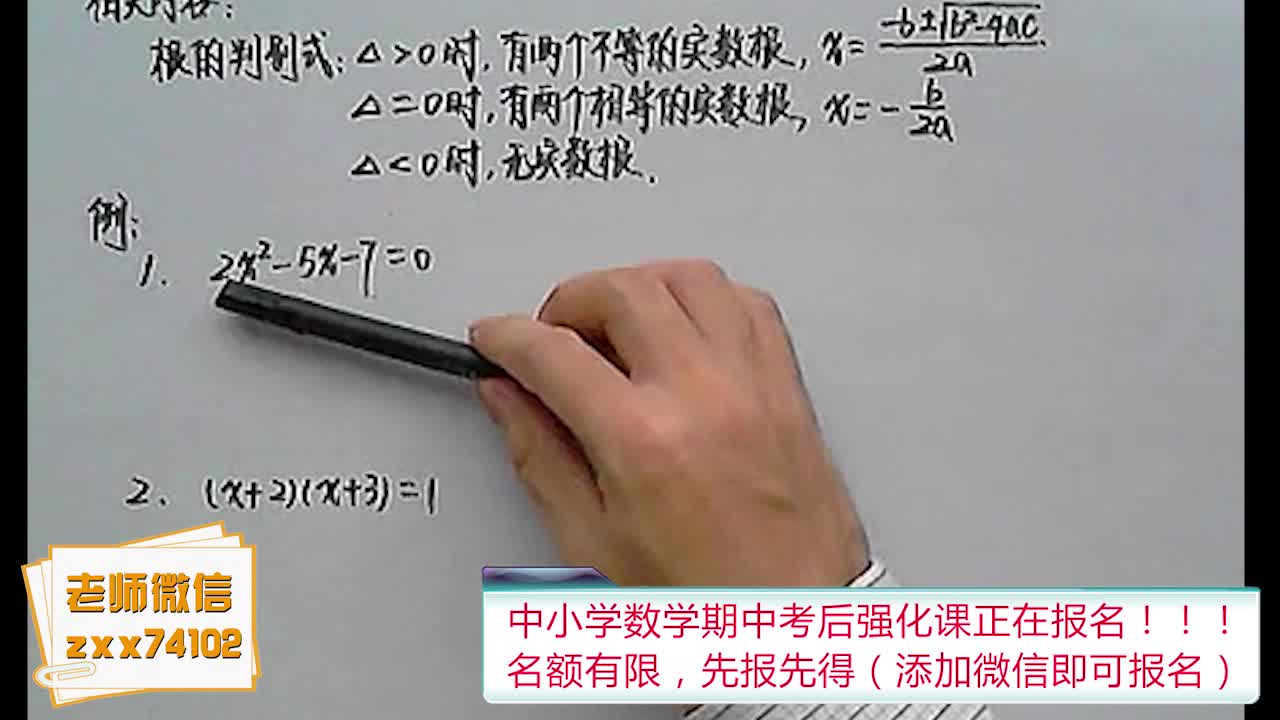 相关内容:
根的判别式: △>0时, 有两个不等的实数根, x= -b±√b²-4ac / 2a
△=0时, 有两个相等的实数根, x= - b / 2a
△<0时, 无实数根.
例:
1. 2x²-5x-7=0
2. (x+2)(x+3)=1
老师微信
zxx74102
中小学数学期中考后强化课正在报名！！！
名额有限，先报先得（添加微信即可报名）